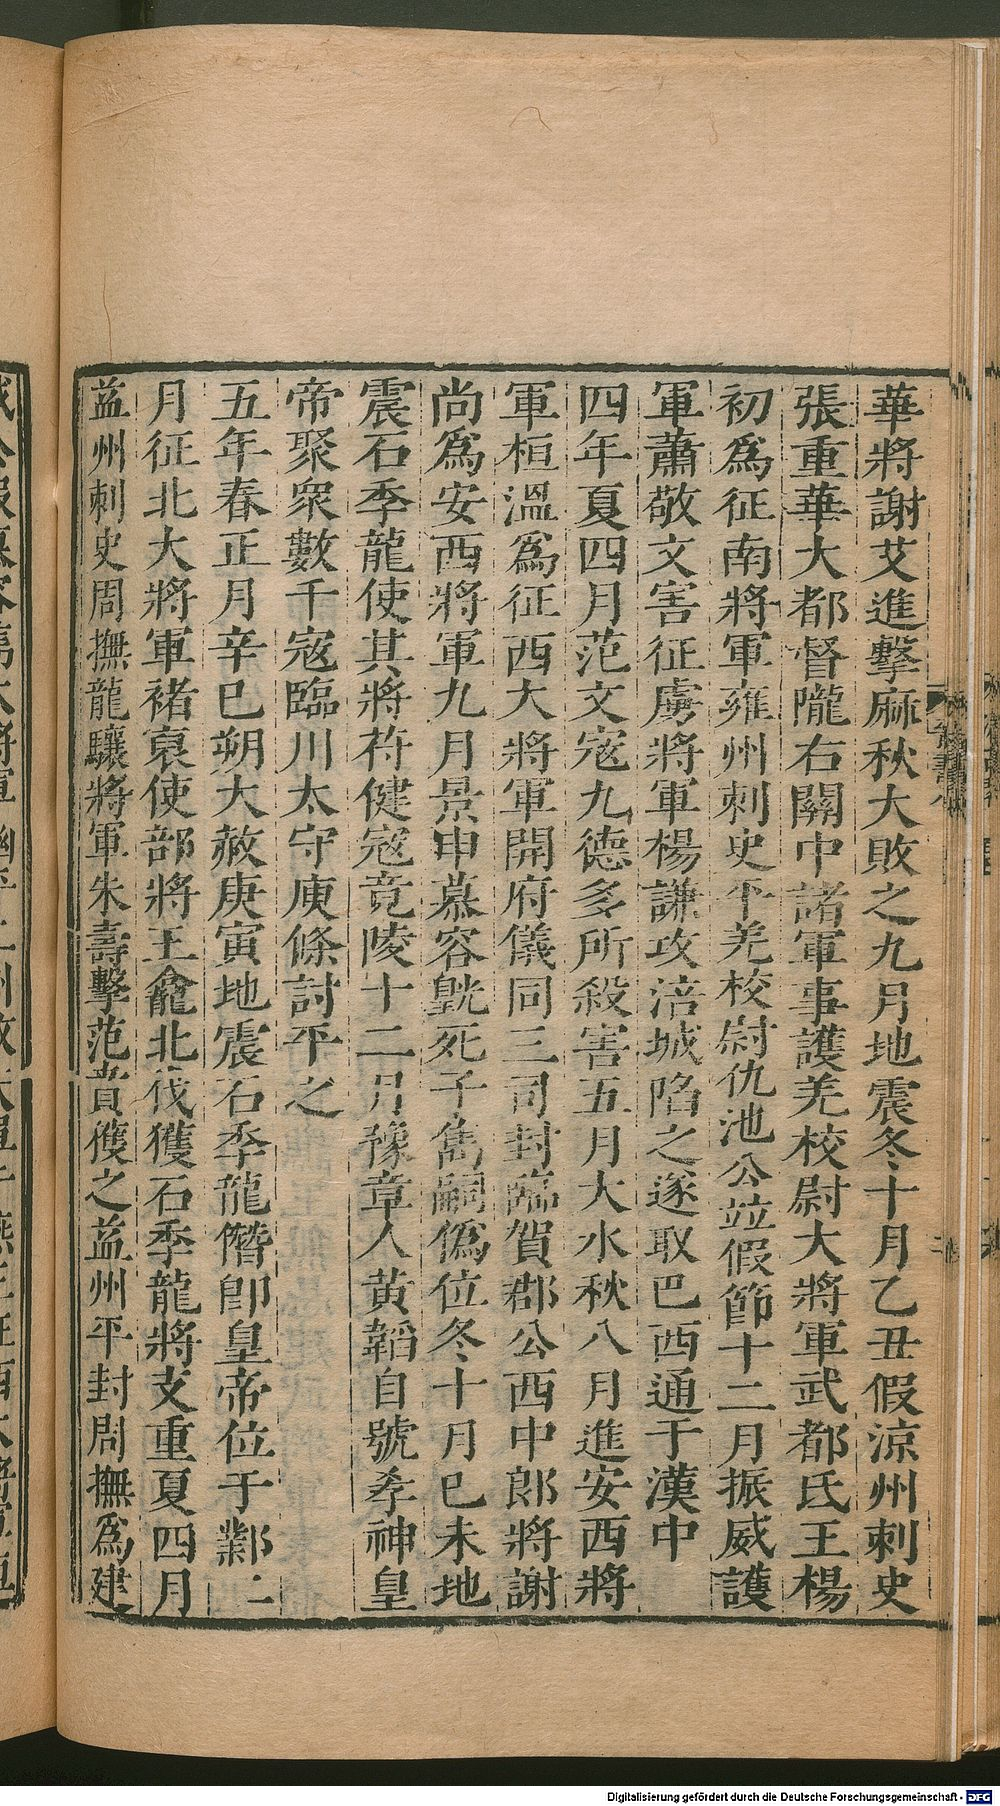 華將謝艾進擊麻秋大敗之九月地震冬十月乙丑假涼州刺史
張重華大都督隴右關中諸軍事護羌校尉大將軍武都氐王楊
初爲征南將軍雍州刺史平羌校尉仇池公竝假節十二月振威護
軍蕭敬文害征虜將軍楊謙攻涪城陷之遂取巴西通于漢中
四年夏四月范文寇九德多所殺害五月大水秋八月進安西將
軍桓溫爲征西大將軍開府儀同三司封臨賀郡公西中郎將謝
尚爲安西將軍九月景申慕容皝死子雋嗣僞位冬十月已未地
震石季龍使其將苻健寇竟陵十二月豫章人黄韜自號孝神皇
帝聚衆數千寇臨川太守庾條討平之
五年春正月辛巳朔大赦庚寅地震石季龍僭卽皇帝位于鄴二
月征北大將軍褚裒使部將王龕北伐獲石季龍將支重夏四月
益州刺史周撫龍驤將軍朱壽擊范賁獲之益州平封周撫爲建
Digitalisierung gefördert durch die Deutsche Forschungsgemeinschaft - DFG